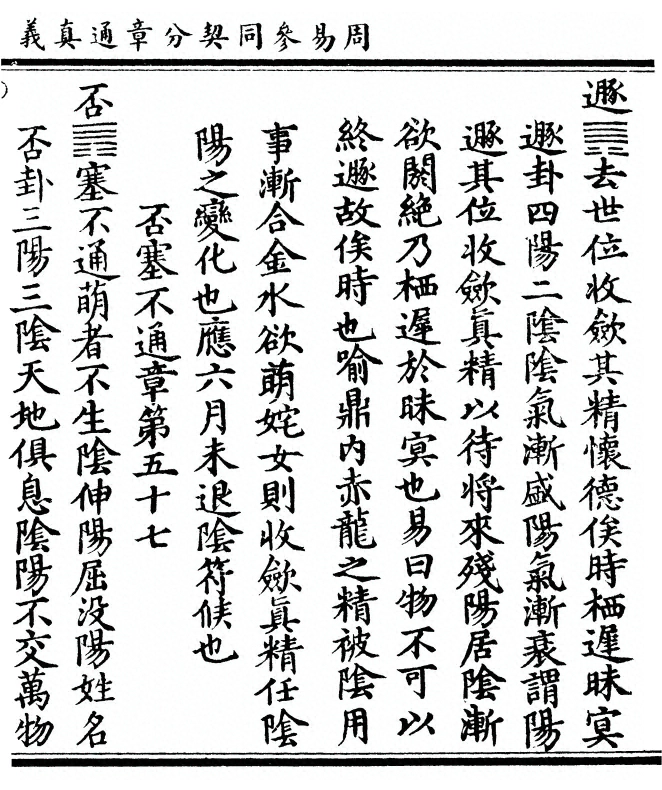 周易參同契分章通真義
遯䷠去世位收歛其精懷德俟時栖遲昧冥
遯卦四陽二陰陰氣漸盛陽氣漸衰謂陽
遯其位收歛眞精以待將來殘陽居陰漸
欲閼絶乃栖遲於昧冥也易曰物不可以
終遯故俟時也喻鼎内赤龍之精被陰用
事漸合金水欲萌姹女則收歛眞精任陰
陽之變化也應六月未退陰符候也
否塞不通章第五十七
否䷋塞不通萌者不生陰伸陽屈没陽姓名
否卦三陽三陰天地俱息陰陽不交萬物